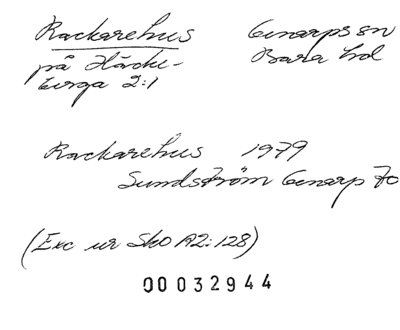 Rackarehus Genarps sn
på Häcke- Bara hd
berga 2:1
Rackarehus 1979
Sundström Genarp 70
(Exc ur SkO A2:128)
00032944